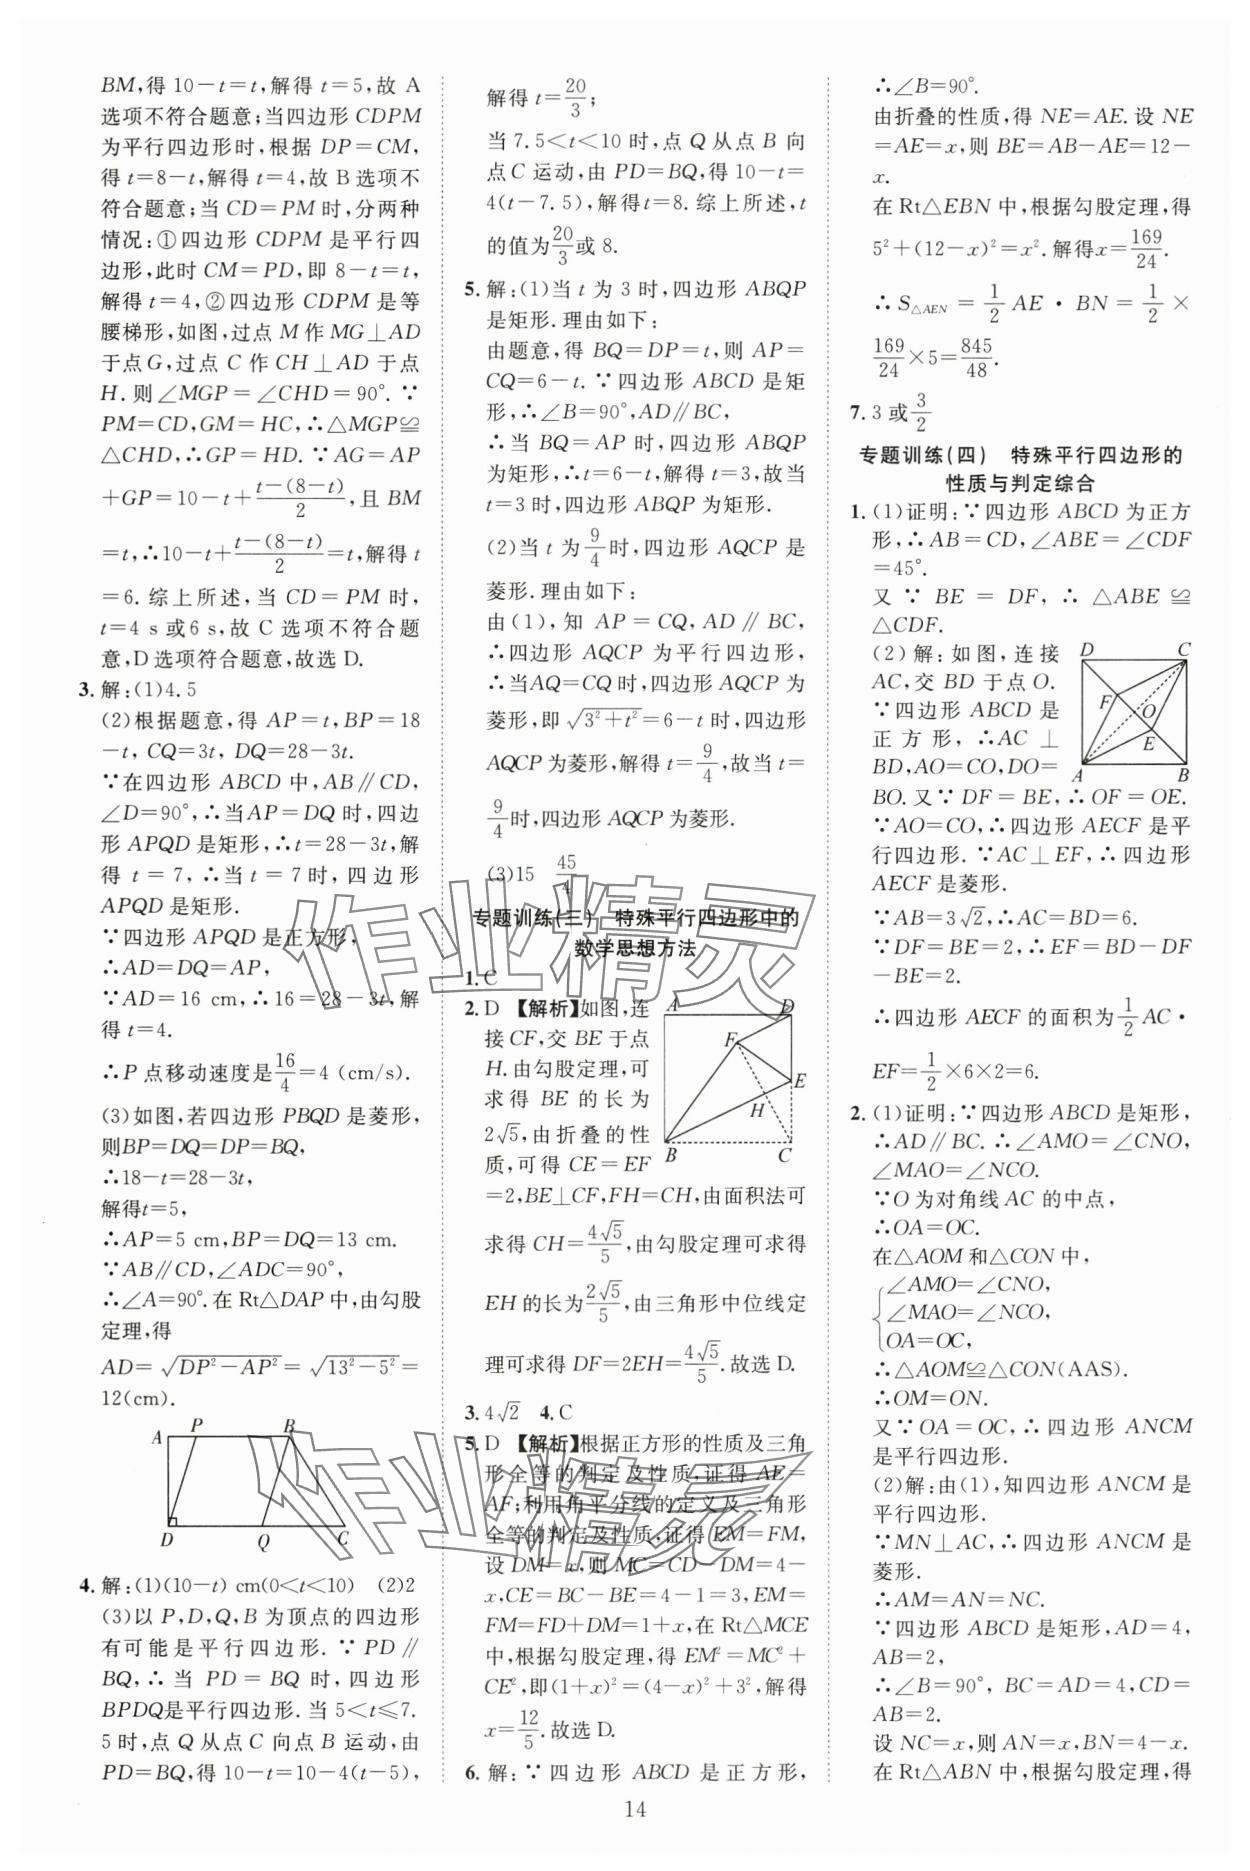 BM,得 10-t=t,解得 t=5,故 A
选项不符合题意;当四边形 CDPM
为平行四边形时,根据 DP=CM,
得 t=8-t,解得 t=4,故 B 选项不
符合题意;当 CD=PM 时,分两种
情况:①四边形 CDPM 是平行四
边形,此时 CM=PD,即 8-t=t,
解得 t=4,②四边形 CDPM 是等
腰梯形,如图,过点 M 作 MG⊥AD
于点 G,过点 C 作 CH⊥AD 于点
H. 则∠MGP=∠CHD=90°. ∵
PM=CD,GM=HC,∴△MGP≌
△CHD,∴GP=HD. ∵AG=AP
+GP=10-t+\frac{t-(8-t)}{2},且 BM
=t,∴10-t+\frac{t-(8-t)}{2}=t,解得 t
=6. 综上所述,当 CD=PM 时,
t=4 s 或 6 s,故 C 选项不符合题
意,D 选项符合题意,故选 D.
3. 解:(1)4.5
(2)根据题意,得 AP=t,BP=18
-t, CQ=3t, DQ=28-3t.
∵在四边形 ABCD 中,AB∥CD,
∠D=90°,∴当AP=DQ 时,四边
形 APQD 是矩形,∴t=28-3t,解
得 t=7,∴当 t=7 时,四边形
APQD 是矩形.
∵四边形 APQD 是正方形,
∴AD=DQ=AP,
∵AD=16 cm,∴16=28-3t,解
得 t=4.
∴P 点移动速度是\frac{16}{4}=4 (cm/s).
(3)如图,若四边形 PBQD 是菱形,
则BP=DQ=DP=BQ,
∴18-t=28-3t,
解得t=5,
∴AP=5 cm,BP=DQ=13 cm.
∵AB∥CD,∠ADC=90°,
∴∠A=90°. 在 Rt△DAP 中,由勾股
定理,得
AD=\sqrt{DP²-AP²}=\sqrt{13²-5²}=
12(cm).
A P B
D Q C
4. 解:(1)(10-t) cm(0<t<10) (2)2
(3)以 P,D,Q,B 为顶点的四边形
有可能是平行四边形. ∵ PD∥
BQ,∴当 PD=BQ 时,四边形
BPDQ是平行四边形. 当 5<t≤7.
5时,点 Q从点 C 向点 B 运动,由
PD=BQ,得 10-t=10-4(t-5),
解得 t=\frac{20}{3};
当 7.5<t<10 时,点 Q 从点 B 向
点 C 运动,由 PD=BQ,得 10-t=
4(t-7.5),解得t=8. 综上所述,t
的值为\frac{20}{3}或 8.
5. 解:(1)当 t 为 3 时,四边形 ABQP
是矩形. 理由如下:
由题意,得 BQ=DP=t,则 AP=
CQ=6-t. ∵四边形 ABCD 是矩
形,∴∠B=90°,AD∥BC,
∴当 BQ=AP 时,四边形 ABQP
为矩形,∴t=6-t,解得 t=3,故当
t=3 时,四边形 ABQP 为矩形.
(2)当 t 为\frac{9}{4}时,四边形 AQCP 是
菱形. 理由如下:
由(1),知 AP=CQ,AD∥BC,
∴四边形 AQCP 为平行四边形,
∴当AQ=CQ 时,四边形 AQCP 为
菱形,即\sqrt{3²+t²}=6-t 时,四边形
AQCP 为菱形,解得 t=\frac{9}{4},故当 t=
\frac{9}{4}时,四边形 AQCP 为菱形.
(3)15 \frac{45}{4}
专题训练(三) 特殊平行四边形中的
数学思想方法
1. C
2. D 【解析】如图,连
接 CF,交 BE 于点
H. 由勾股定理,可
求得 BE 的长为
2\sqrt{5},由折叠的性
质,可得 CE=EF
=2,BE⊥CF,FH=CH,由面积法可
求得 CH=\frac{4\sqrt{5}}{5},由勾股定理可求得
EH 的长为\frac{2\sqrt{5}}{5},由三角形中位线定
理可求得 DF=2EH=\frac{4\sqrt{5}}{5}. 故选 D.
A D
F
E
H
B C
3. 4\sqrt{2} 4. C
5. D 【解析】根据正方形的性质及三角
形全等的判定及性质,证得 AE=
AF;利用角平分线的定义及三角形
全等的判定及性质,证得 EM=FM,
设 DM=x,则 MC=CD-DM=4-
x,CE=BC-BE=4-1=3,EM=
FM=FD+DM=1+x,在 Rt△MCE
中,根据勾股定理,得 EM²=MC²+
CE²,即(1+x)²=(4-x)²+3²,解得
x=\frac{12}{5}. 故选 D.
6. 解:∵四边形 ABCD 是正方形,
∴∠B=90°.
由折叠的性质,得 NE=AE. 设 NE
=AE=x,则 BE=AB-AE=12-
x.
在 Rt△EBN 中,根据勾股定理,得
5²+(12-x)²=x². 解得x=\frac{169}{24}.
∴S△AEN=\frac{1}{2}AE·BN=\frac{1}{2}×
\frac{169}{24}×5=\frac{845}{48}.
7. 3 或\frac{3}{2}
专题训练(四) 特殊平行四边形的
性质与判定综合
1. (1)证明:∵四边形 ABCD 为正方
形,∴AB=CD,∠ABE=∠CDF
=45°.
又∵BE=DF,∴△ABE≌
△CDF.
(2)解:如图,连接
AC,交 BD 于点 O.
∵四边形 ABCD 是
正方形,∴AC⊥
BD,AO=CO,DO=
BO. 又∵DF=BE,∴OF=OE.
∵AO=CO,∴四边形 AECF 是平
行四边形. ∵AC⊥EF,∴四边形
AECF 是菱形.
∵AB=3\sqrt{2},∴AC=BD=6.
∵DF=BE=2,∴EF=BD-DF
-BE=2.
∴四边形 AECF 的面积为\frac{1}{2}AC·
EF=\frac{1}{2}×6×2=6.
D C
F
O
E
A B
2. (1)证明:∵四边形 ABCD 是矩形,
∴AD∥BC. ∴∠AMO=∠CNO,
∠MAO=∠NCO.
∵O 为对角线 AC 的中点,
∴OA=OC.
在△AOM 和△CON 中,
∠AMO=∠CNO,
∠MAO=∠NCO,
OA=OC,
∴△AOM≌△CON(AAS).
∴OM=ON.
又∵OA=OC,∴四边形 ANCM
是平行四边形.
(2)解:由(1),知四边形 ANCM 是
平行四边形.
∵MN⊥AC,∴四边形 ANCM 是
菱形.
∴AM=AN=NC.
∵四边形 ABCD 是矩形,AD=4,
AB=2,
∴∠B=90°, BC=AD=4,CD=
AB=2.
设 NC=x,则 AN=x,BN=4-x.
在 Rt△ABN 中,根据勾股定理,得
14
作业精灵
作业精灵